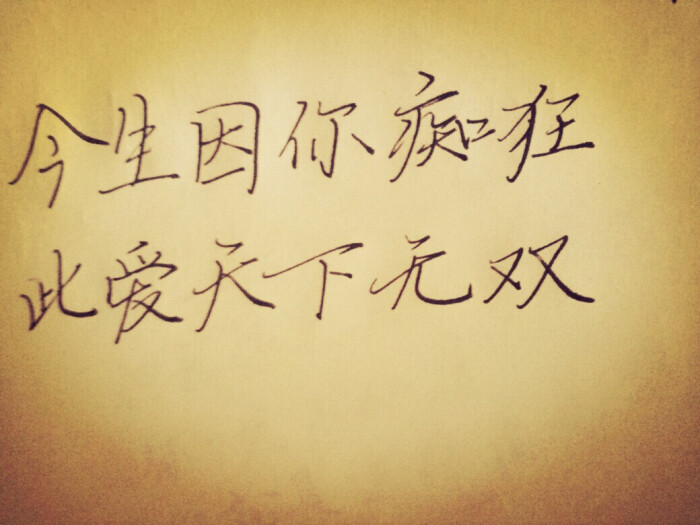 今生因你痴狂
此爱天下无双